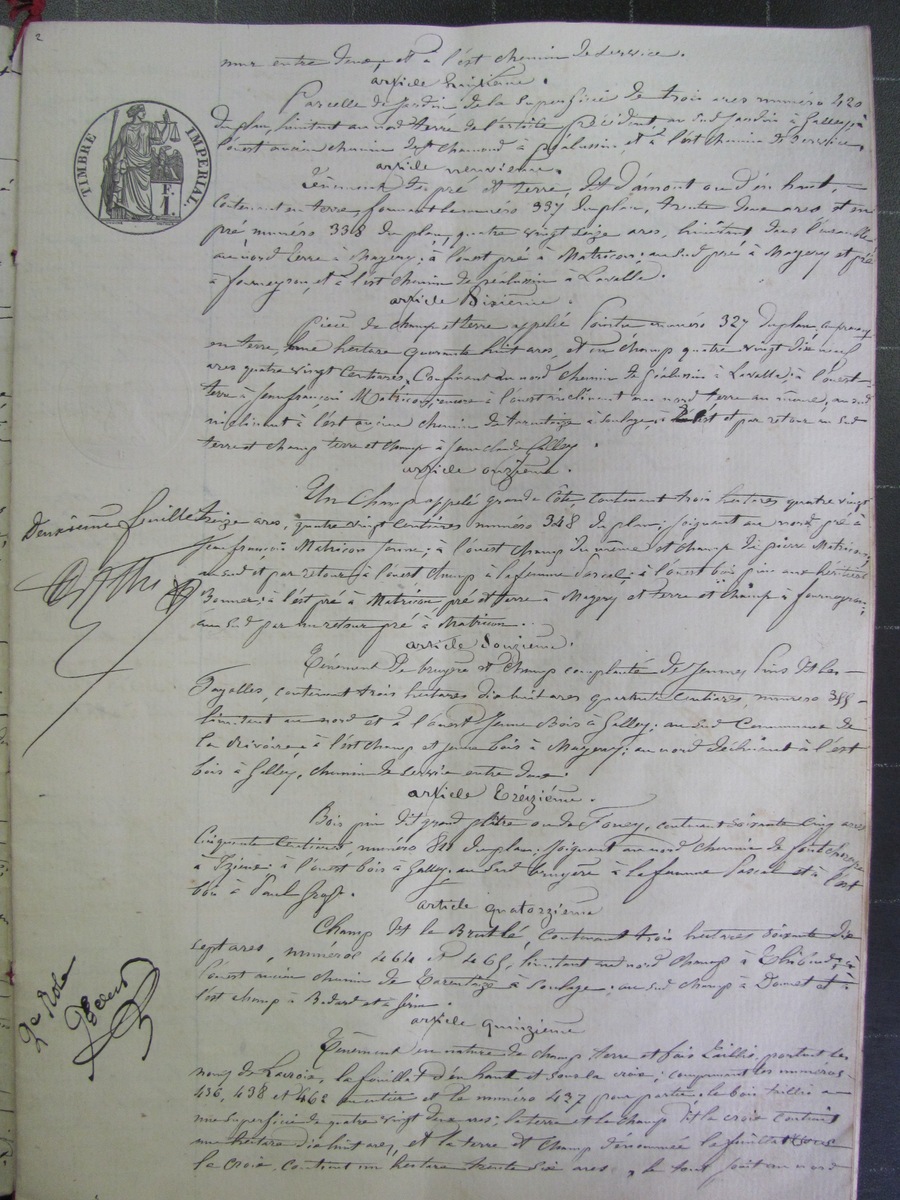 2
mur entre deux, et à l'est chemin de service.
article huitième.
Parcelle de Jardin de la Superficie de trois ares numéro 420
du plan, limitant au nord terre de l'article précédent au sud Jardin à Galley, à
l'ouest ancien chemin de St Chamond à et à l'est Chemin de Service.
TIMBRE IMPERIAL.
F.
1.
article neuvième.
Ténement de pré et terre, dit d'amont ou d'en haut,
Contenant en terre, formant le numéro 337 du plan, trente deux ares et en
pré numéro 338 du plan, quatre vingt seize ares, limitant dans l'ensemble
au nord terre à Mayery; à l'ouest pré à Matricon; au sud pré à Mayery et pré
à Fourneyron, et à l'est chemin de à Lavalla.
article Dixième.
Pièce de champ et terre appelée numéro 327 du plan,
en terre, une hectare quarante huit ares, et en champ quatre vingt dix neuf
ares quatre vingt centiares. Confinant au nord chemin de à Lavalla, à l'ouest
terre à Jean françois Matricon, encore à l'ouest inclinant au nord terre au même, au sud
inclinant à l'est ancien chemin de tarentaize à Soulage, à l'est et par retour au sud
terre et champ terre et champ à Jean claude Galley.
article onzième.
Un Champ appelé grande Côte, contenant trois hectares quatre vingt
Deuxième feuillet
treize ares, quatre vingt centiares numéro 348 du plan; joignant au nord pré à
Jean françois Matricon Janne; à l'ouest champ du même et champ de pierre Matricon;
au sud et par retour à l'ouest champ à la femme Pascal; à l'ouest bois pins aux héritiers
Bonner; à l'est pré à Matricon, pré et terre à Mayery et terre et champ à fourneyron;
au sud par un retour pré à Matricon.
article Douzième.
Ténement de bruyère et champ complanté de Jeunes Pins dit les
Fayolles, contenant trois hectares dix huit ares quarante centiares, numéro
limitant au nord et à l'ouest Jeune Bois à Galley; au sud Commune de
la rivoire, à l'est champ et jeune bois à Mayery; au nord déclinant à l'est
bois à Galley, chemin de service entre deux.
article Treizième.
Bois pin dit grand plâtre ou de Foney, contenant soixante cinq ares
Cinquante Centiares, numéro du plan. Joignant au nord Chemin de
à Izieux à l'ouest bois à Galley, au Sud bruyère à la femme Pascal et à l'est
bois à Paul
article quatorzième
Champ dit le Brulé, Contenant trois hectares soixante dix
sept ares, numéros 464 et 465, limitant au nord champ à Thibaud, à
l'ouest ancien chemin de Tarentaize à Soulage; au sud champ à et à
l'est champ à et à
2e Role
article quinzième
Ténement en nature de champ terre et bois taillis, portant les
noms de Lacroix, le fouillat d'en haut et sous la croix; comprenant les numéros
436, 438 et 462 en entier et le numéro 437 pour partie; le bois taillis a
une superficie de quatre vingt deux ares; la terre et le champ dit la croix contient
une hectare dix huit ares, et la terre et champ dénommée le fouillat sous
la croix contient un hectare trente dix ares, le tout joint au nord